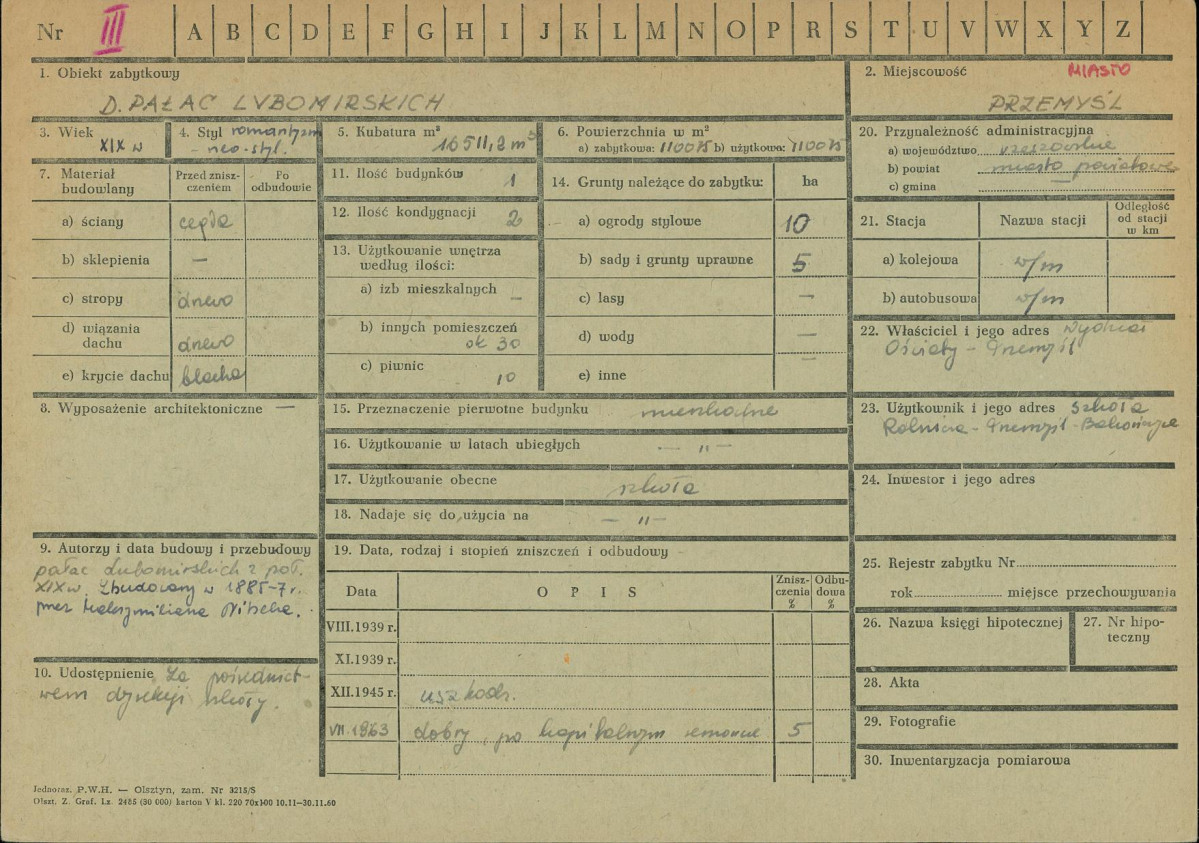 Nr III A B C D E F G H I J K L M N O P R S T U V W X Y Z
1. Obiekt zabytkowy
D. PAŁAC LUBOMIRSKICH
2. Miejscowość MIASTO
PRZEMYŚL
3. Wiek
XIX w
4. Styl romantyzm
- neo-styl.
5. Kubatura m³
16511,2 m³
6. Powierzchnia w m²
a) zabytkowa: 1100 b) użytkowa: 1100
7. Materiał
budowlany
Przed znisz-
czeniem
Po
odbudowie
a) ściany cegła
b) sklepienia —
c) stropy drewo
d) wiązania
dachu drewo
e) krycie dachu blacha
8. Wyposażenie architektoniczne —
9. Autorzy i data budowy i przebudowy
pałac Lubomirskich z poł.
XIX w. Zbudowany w 1885-7 r.
przez Maksymiliana Nitscha.
10. Udostępnienie Za pośrednict-
wem dyrekcji szkoły.
11. Ilość budynków 1
12. Ilość kondygnacji 2
13. Użytkowanie wnętrza
według ilości:
a) izb mieszkalnych —
b) innych pomieszczeń
ok 30
c) piwnic
10
14. Grunty należące do zabytku: ha
a) ogrody stylowe 10
b) sady i grunty uprawne 5
c) lasy —
d) wody —
e) inne —
15. Przeznaczenie pierwotne budynku mieszkalne
16. Użytkowanie w latach ubiegłych — " —
17. Użytkowanie obecne szkoła
18. Nadaje się do użycia na — " —
19. Data, rodzaj i stopień zniszczeń i odbudowy
Data O P I S Znisz-
czenia
% Odbu-
dowa
%
VIII.1939 r.
XI.1939 r.
XII.1945 r. uszkodz.
VII.1963 dobry, po kapitalnym remoncie 5
20. Przynależność administracyjna
a) województwo rzeszowskie
b) powiat miasto powiatowe
c) gmina —
21. Stacja Nazwa stacji Odległość
od stacji
w km
a) kolejowa w/m
b) autobusowa w/m
22. Właściciel i jego adres Wydział
Oświaty - Przemyśl
23. Użytkownik i jego adres Szkoła
Rolnicza - Przemyśl - Bakończyce
24. Inwestor i jego adres
25. Rejestr zabytku Nr
rok miejsce przechowywania
26. Nazwa księgi hipotecznej
27. Nr hipo-
teczny
28. Akta
29. Fotografie
30. Inwentaryzacja pomiarowa
Jednoraz. P.W.H. — Olsztyn, zam. Nr 3215/S
Olszt. Z. Graf. Lz. 2485 (30 000) karton V kl. 220 70x100 10.11—30.11.60